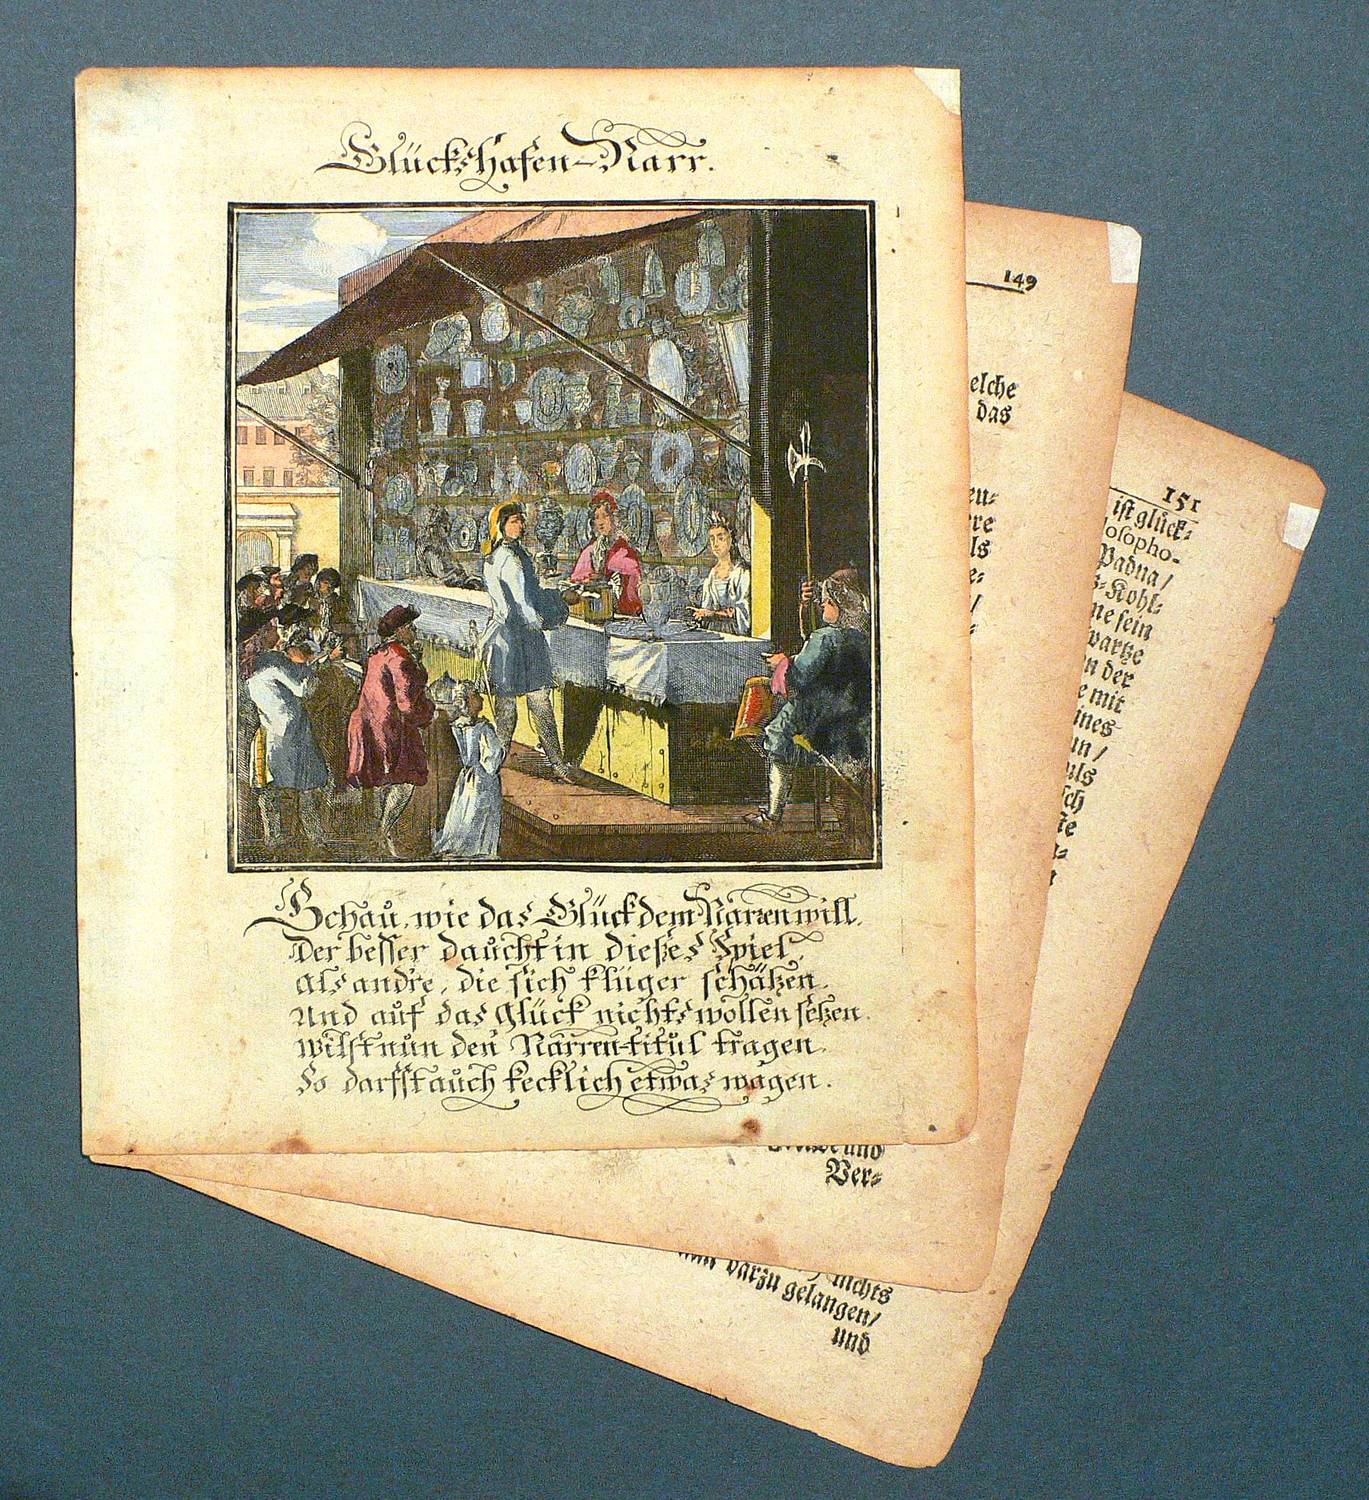 Glücks-Hafen-Narr.
Schau, wie das Glück dem Narren will,
Der besser daucht in dieses Spiel,
als andre, die sich klüger schätzen,
Und auf das Glück nichts wollen setzen.
wilst nun den Narren-titul tragen,
So darffst auch kecklich etwas wagen.
149
elche
das
en-
ere
ls
e-
/
und
Ver-
151
ist glück-
osopho-
Padua/
s-Kohl-
ne sein
wartze
n der
e mit
ines
un/
uls
sch
te
nichts
darzu gelangen/
und